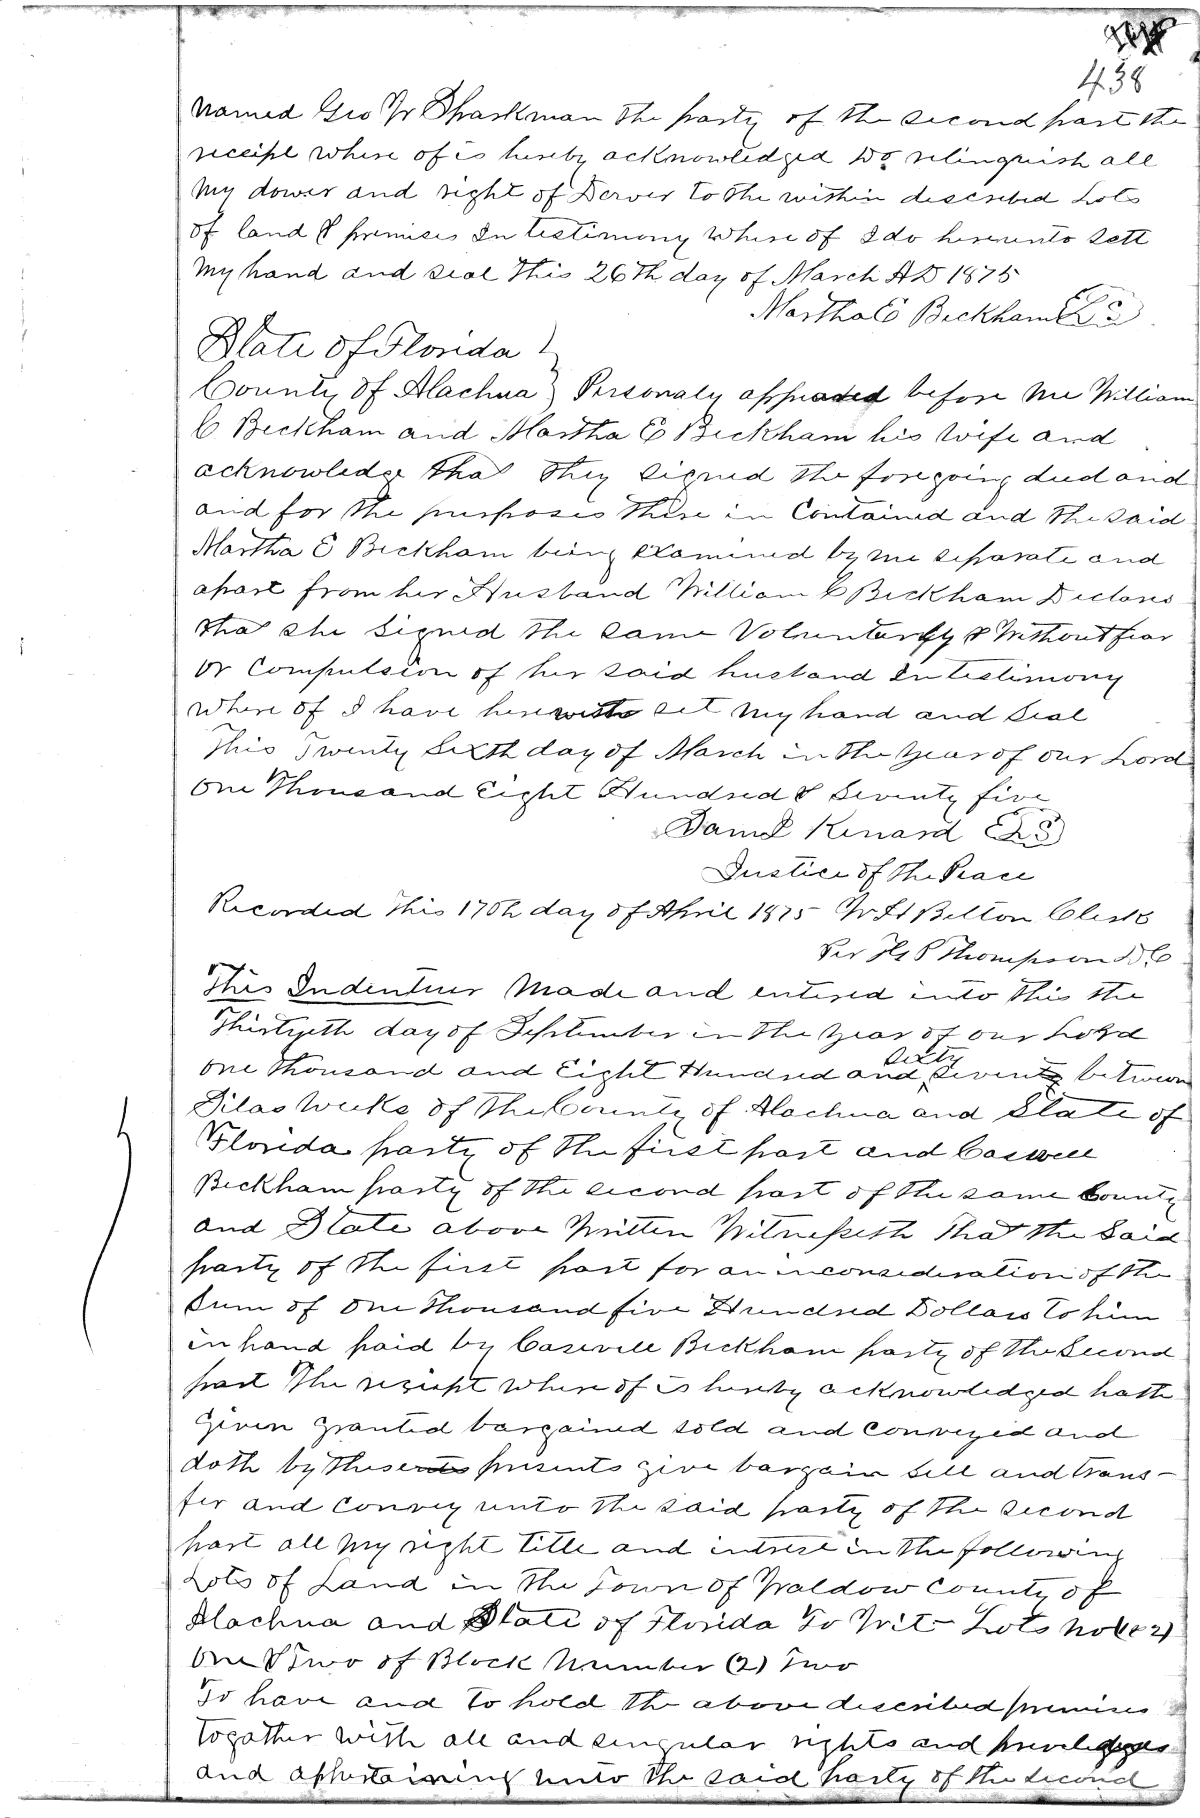 438
named Geo W Sparkman the party of the second part the
receipt where of is hereby acknowledged Do relinquish all
my dower and right of Dower to the within described Lots
of land & premises In testimony where of I do hereunto sett
my hand and seal this 26th day of March AD 1875
Martha E Beckham LS
State of Florida }
County of Alachua } Personaly appeared before me William
C Beckham and Martha E Beckham his wife and
acknowledge that they signed the foregoing deed and
and for the purposes there in Contained and the said
Martha E Beckham being examined by me separate and
apart from her Husband William C Beckham Declares
that she signed the same Voluntarily & Without fear
or Compulsion of her said husband In testimony
where of I have herewith set my hand and Seal
this Twenty Sixth day of March in the year of our Lord
one Thousand Eight Hundred & Seventy five
Saml Kenard LS
Justice of the Peace
Recorded this 17th day of April 1875 W H Belton Clerk
Per H P Thompson D.C
This Indentuer Made and entered into this the
Thirtyeth day of September in the year of our Lord
sixty
one thousand and Eight Hundred and seventy between
Silas Weeks of the County of Alachua and State of
Florida party of the first part and Caswell
Beckham party of the second part of the same County
and State above Written Witnesseth That the Said
party of the first part for an inconsideration of the
Sum of One thousand five Hundred Dollars to him
in hand paid by Caswell Beckham party of the Second
part The receipt where of is hereby acknowledged hath
given granted bargained sold and conveyed and
doth by these presents give bargain sell and trans-
fer and convey unto the said party of the second
part all my right title and intrest in the following
Lots of Land in the Town of Waldow County of
Alachua and State of Florida To Wit- Lots no (1&2)
One & Two of Block Number (2) Two
To have and to hold the above described premises
togather with all and singular rights and priveledges
and appertaining unto the said party of the second